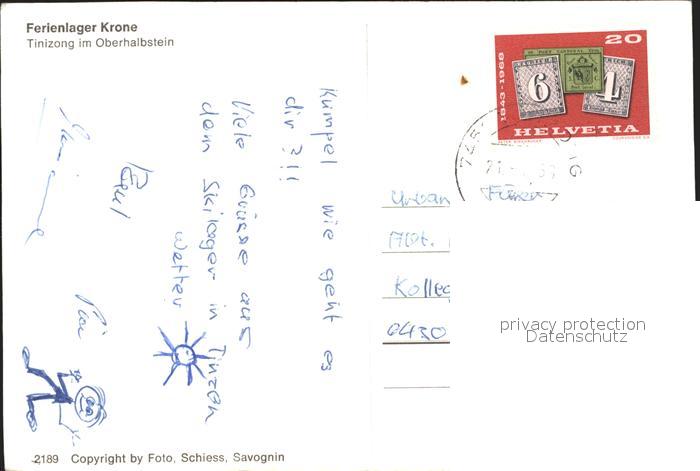 Ferienlager Krone
Tinizong im Oberhalbstein
Kumpel wie geht es
dir ?!!!
Viele Grüsse aus
dem Skilager in Tinzen
Wetter
Paul
Urban
Kolleg
6430
20
1843-1968
6
4
HELVETIA
privacy protection
Datenschutz
2189 Copyright by Foto, Schiess, Savognin